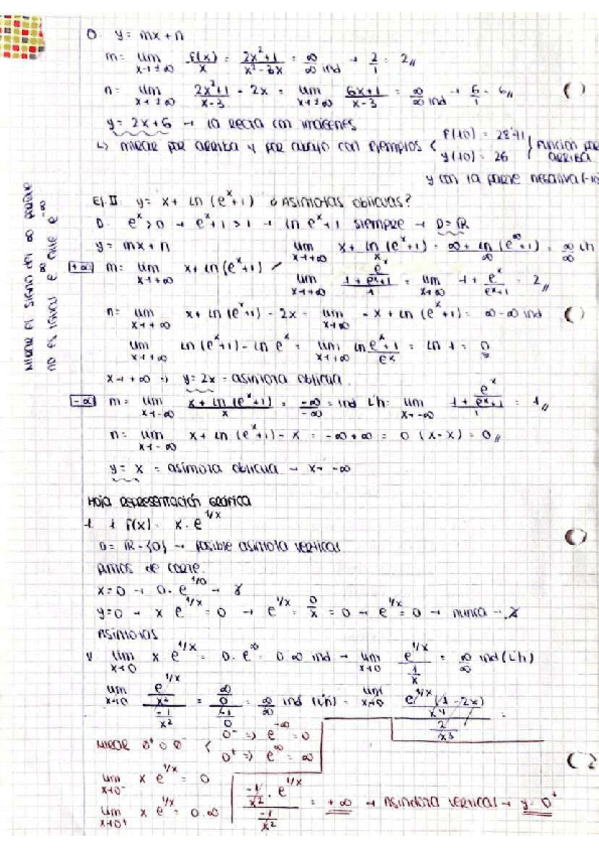 O. y = mx + n
m = lim x→±∞ f(x)/x = (2x²+1)/(x²-3x) = ∞/∞ ind → 2/1 = 2//
n = lim x→±∞ (2x²+1)/(x-3) - 2x = lim x→±∞ (6x+1)/(x-3) = ∞/∞ ind → 6/1 = 6//
y = 2x+6 → la recta con imágenes
↳ mirar por arriba y por abajo con ejemplos { f(10) = 28'71 y(10) = 26 } función por arriba
y con la parte negativa (-10
Mirar el signo del ∞ porque no es igual e^∞ que e^-∞
Ej. II y = x + ln (e^x+1) ¿Asíntotas oblicuas?
D. e^x > 0 → e^x+1 > 1 → ln e^x+1 siempre → D=ℝ
y = mx + n lim x→+∞ (x + ln (e^x+1))/x = (∞ + ln (e^∞+1))/∞ = ∞/∞ L'h
+∞ m = lim x→+∞ x + ln (e^x+1) lim x→+∞ (1 + e^x/(e^x+1))/1 = lim x→∞ 1 + e^x/(e^x+1) = 2//
n = lim x→+∞ x + ln (e^x+1) - 2x = lim x→+∞ - x + ln (e^x+1) = ∞ - ∞ ind
lim x→+∞ ln (e^x+1) - ln e^x = lim x→+∞ ln (e^x+1)/e^x = ln 1 = 0
x→+∞ → y = 2x = asíntota oblicua.
-∞ m = lim x→-∞ (x + ln (e^x+1))/x = -∞/-∞ = ind L'h = lim x→-∞ (1 + e^x/(e^x+1))/1 = 1//
n = lim x→-∞ x + ln (e^x+1) - x = -∞+∞ = 0 (x-x) = 0//
y = x = asíntota oblicua → x→ -∞
Hoja representación gráfica
1. f(x) = x · e^1/x
D = ℝ - {0} → posible asíntota vertical
Puntos de corte.
x=0 → 0 · e^1/0 → ∄
y=0 → x e^1/x = 0 → e^1/x = 0/x = 0 → e^1/x = 0 → nunca → ∄
Asíntotas
V lim x→0 x e^1/x = 0 · e^∞ = 0·∞ ind → lim x→0 e^1/x / (1/x) = ∞/∞ ind (L'h)
lim x→0 (e^1/x / x²)/(-1/x²) = (∞/0)/(-1/0) = ∞/∞ ind (L'h) = lim x→0 (e^1/x (1-2x)/x⁴)/(2/x³)
Mirar 0⁺ o 0⁻ { 0⁻ ⇒ e^-∞ = 0
0⁺ ⇒ e^∞ = ∞
lim x→0⁻ x e^1/x = 0
lim x→0⁺ x e^1/x = 0·∞ (-1/x² · e^1/x)/(-1/x²) = +∞ → Asíntota vertical → y = 0⁺